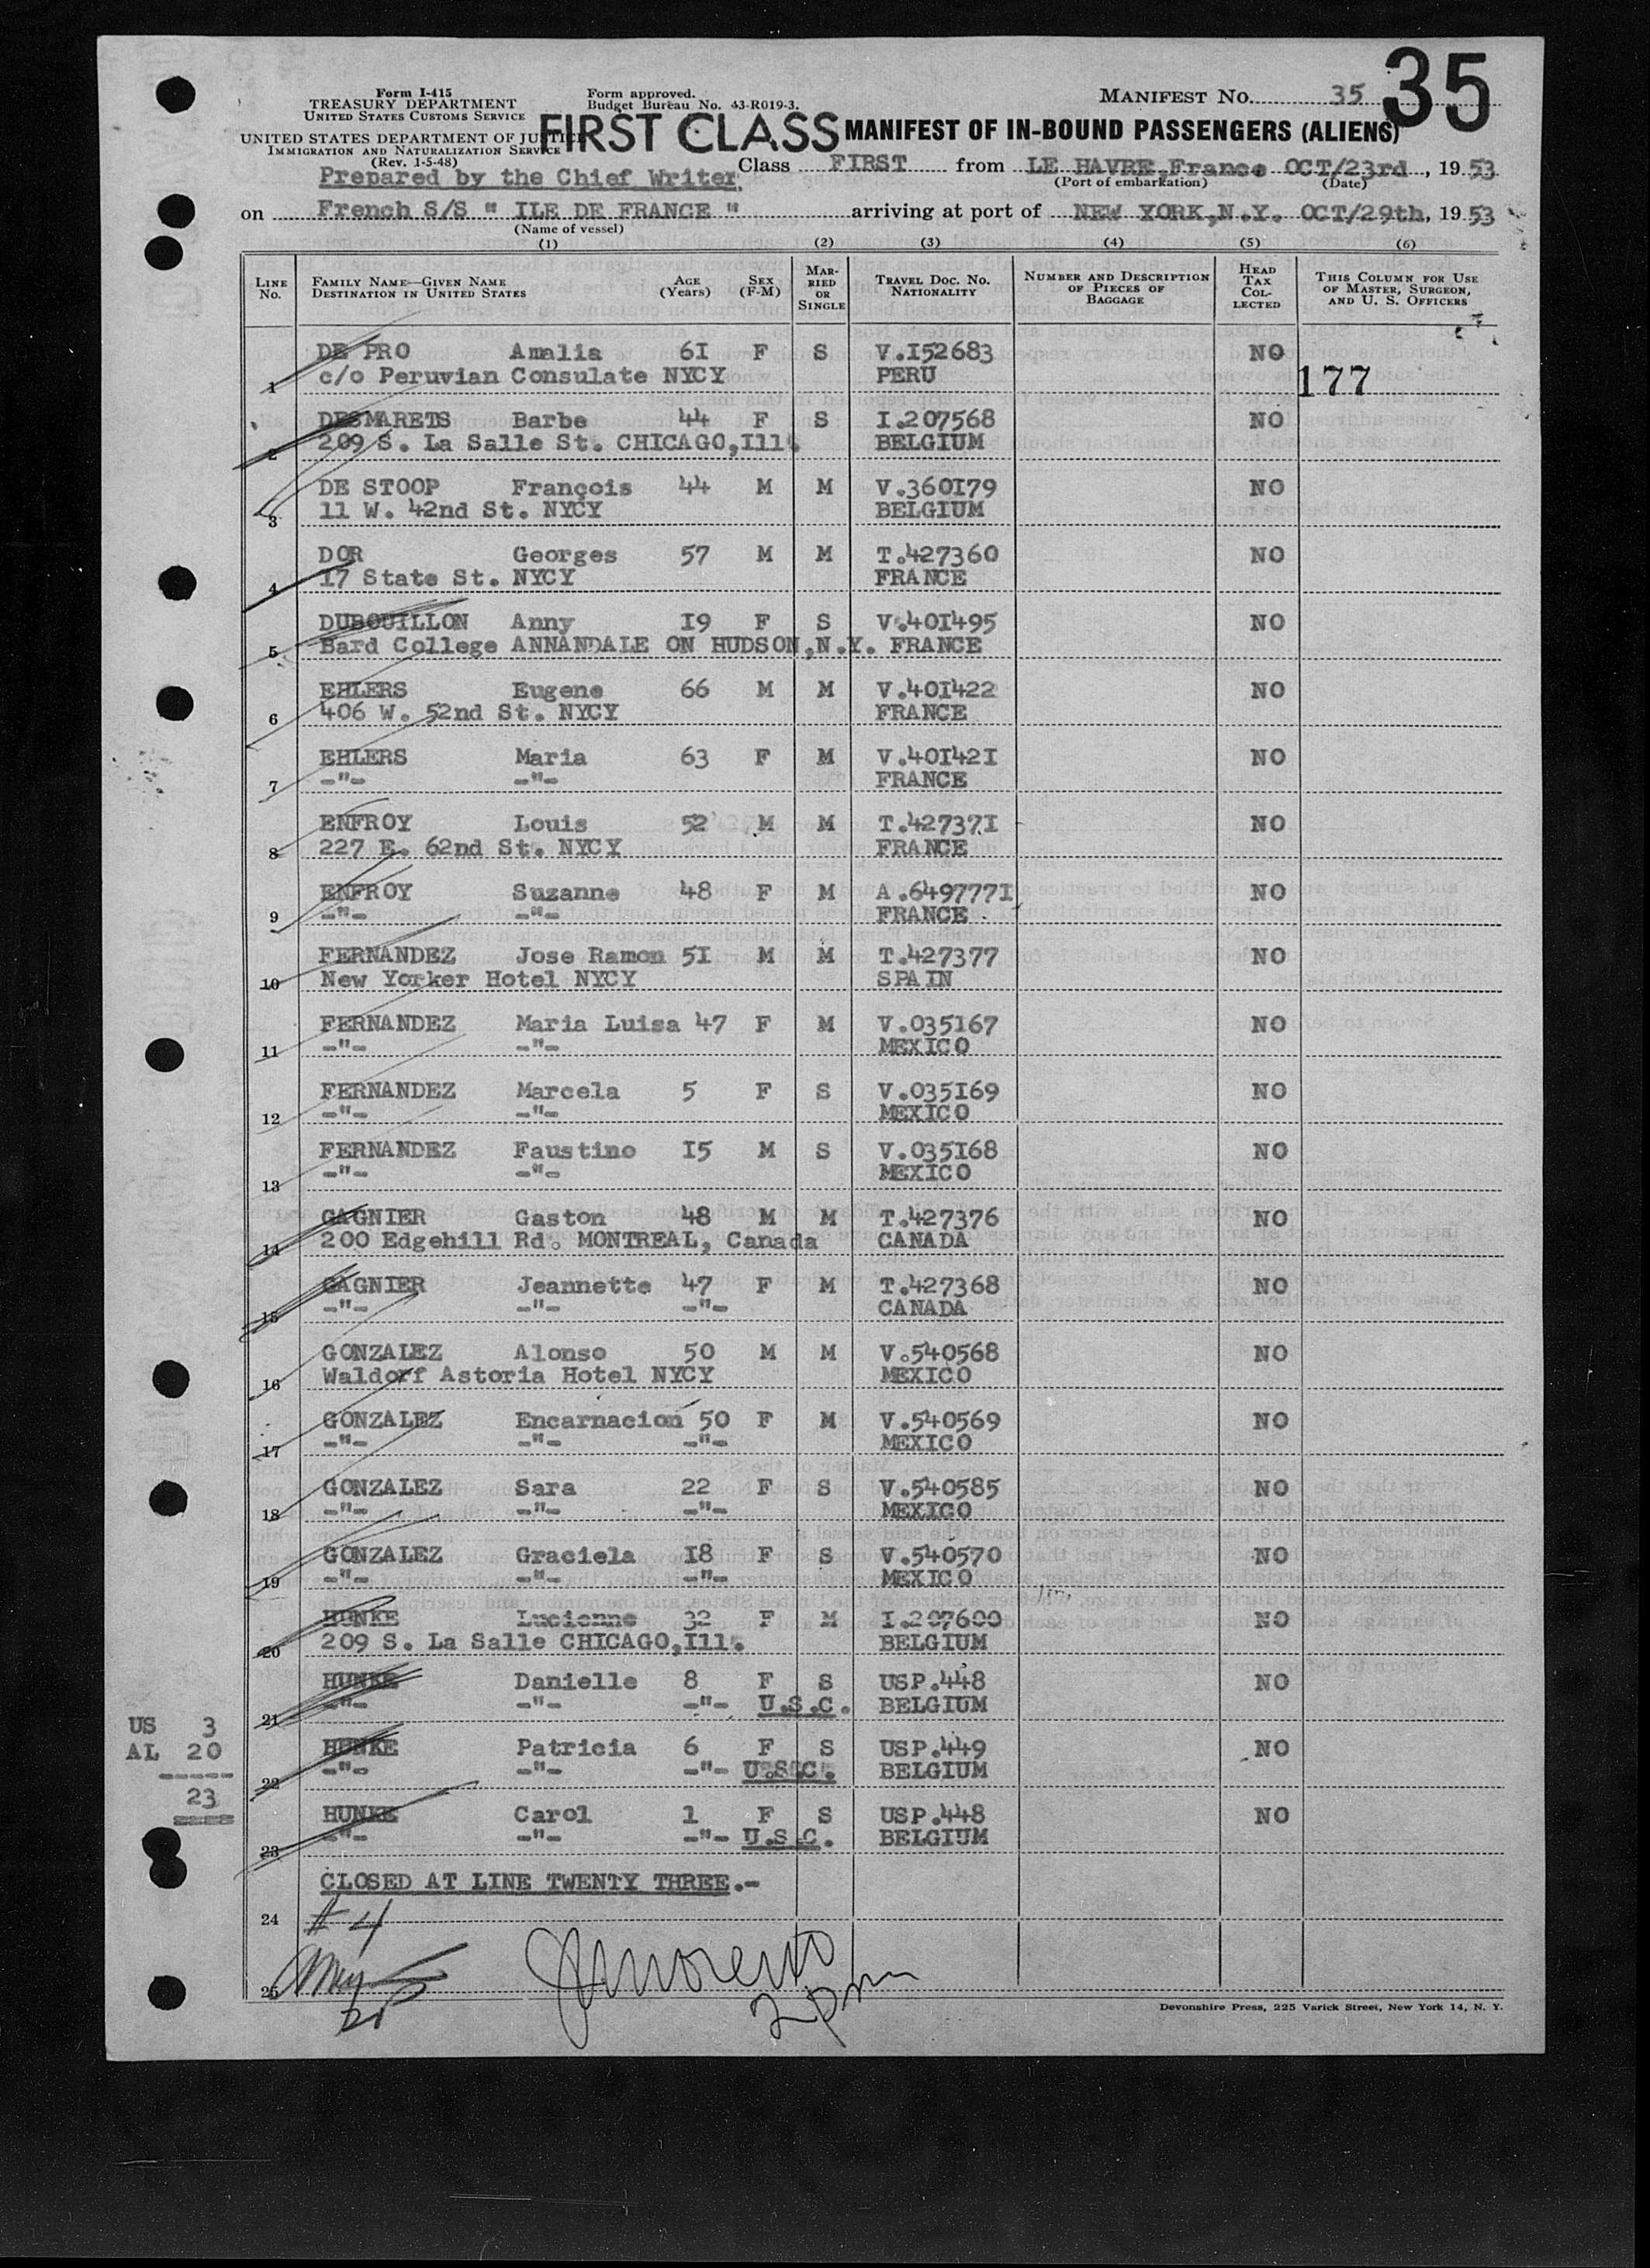 35
Form I-415
TREASURY DEPARTMENT
UNITED STATES CUSTOMS SERVICE
UNITED STATES DEPARTMENT OF JUSTICE
IMMIGRATION AND NATURALIZATION SERVICE
(Rev. 1-5-48)
Form approved.
Budget Bureau No. 43-R019-3.
MANIFEST NO. 35
FIRST CLASS MANIFEST OF IN-BOUND PASSENGERS (ALIENS)
Prepared by the Chief Writer.
Class FIRST from LE HAVRE,France OCT/23rd, 1953
(Port of embarkation) (Date)
on French S/S " ILE DE FRANCE " arriving at port of NEW YORK,N.Y. OCT/29th, 1953
(Name of vessel)
(1) (2) (3) (4) (5) (6)
LINE NO. FAMILY NAME—GIVEN NAME DESTINATION IN UNITED STATES AGE (Years) SEX (F-M) MARRIED OR SINGLE TRAVEL DOC. NO. NATIONALITY NUMBER AND DESCRIPTION OF PIECES OF BAGGAGE HEAD TAX COLLECTED THIS COLUMN FOR USE OF MASTER, SURGEON, AND U. S. OFFICERS
DE PRO Amalia 61 F S V.152683 NO
1 c/o Peruvian Consulate NYCY PERU 177
DESMARETS Barbe 44 F S I.207568 NO
2 209 S. La Salle St. CHICAGO,Ill. BELGIUM
DE STOOP François 44 M M V.360179 NO
3 11 W. 42nd St. NYCY BELGIUM
DOR Georges 57 M M T.427360 NO
4 17 State St. NYCY FRANCE
DUBOUILLON Anny 19 F S V.401495 NO
5 Bard College ANNANDALE ON HUDSON,N.Y. FRANCE
EHLERS Eugene 66 M M V.401422 NO
6 406 W. 52nd St. NYCY FRANCE
EHLERS Maria 63 F M V.401421 NO
7 -"- -"- FRANCE
ENFROY Louis 52 M M T.427371 NO
8 227 E. 62nd St. NYCY FRANCE
ENFROY Suzanne 48 F M A.6497771 NO
9 -"- -"- FRANCE
FERNANDEZ Jose Ramon 51 M M T.427377 NO
10 New Yorker Hotel NYCY SPAIN
FERNANDEZ Maria Luisa 47 F M V.035167 NO
11 -"- -"- MEXICO
FERNANDEZ Marcela 5 F S V.035169 NO
12 -"- -"- MEXICO
FERNANDEZ Faustino 15 M S V.035168 NO
13 -"- -"- MEXICO
GAGNIER Gaston 48 M M T.427376 NO
14 200 Edgehill Rd. MONTREAL, Canada CANADA
GAGNIER Jeannette 47 F M T.427368 NO
15 -"- -"- -"- CANADA
GONZALEZ Alonso 50 M M V.540568 NO
16 Waldorf Astoria Hotel NYCY MEXICO
GONZALEZ Encarnacion 50 F M V.540569 NO
17 -"- -"- -"- MEXICO
GONZALEZ Sara 22 F S V.540585 NO
18 -"- -"- -"- MEXICO
GONZALEZ Graciela 18 F S V.540570 NO
19 -"- -"- -"- MEXICO
HUNKE Lucienne 32 F M I.207600 NO
20 209 S. La Salle CHICAGO,Ill. BELGIUM
HUNKE Danielle 8 F S USP.448 NO
21 -"- -"- -"- U.S.C. BELGIUM
HUNKE Patricia 6 F S USP.449 NO
22 -"- -"- -"- U.S.C. BELGIUM
HUNKE Carol 1 F S USP.448 NO
23 -"- -"- -"- U.S.C. BELGIUM
US 3
AL 20
23
CLOSED AT LINE TWENTY THREE.-
24 # 4
25
2 pm
Devonshire Press, 225 Varick Street, New York 14, N. Y.